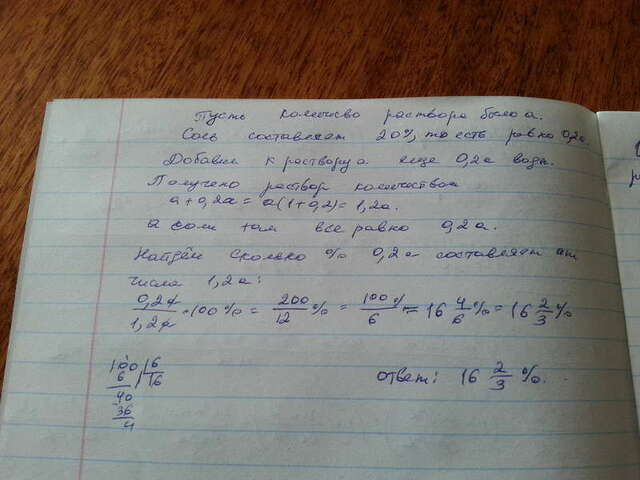 Пусть количество раствора было а.
Соль составляет 20%, то есть равно 0,2а.
Добавим к раствору а еще 0,2а воды.
Получено раствор количеством
а + 0,2а = а(1+0,2) = 1,2а.
а соли там все равно 0,2а.
Найдём сколько % 0,2а составляет от
числа 1,2а:
0,2а/1,2а · 100% = 200/12 % = 100/6 % = 16 4/6 % = 16 2/3 %
100 | 6
6 | 16
40
36
4
ответ: 16 2/3 %.